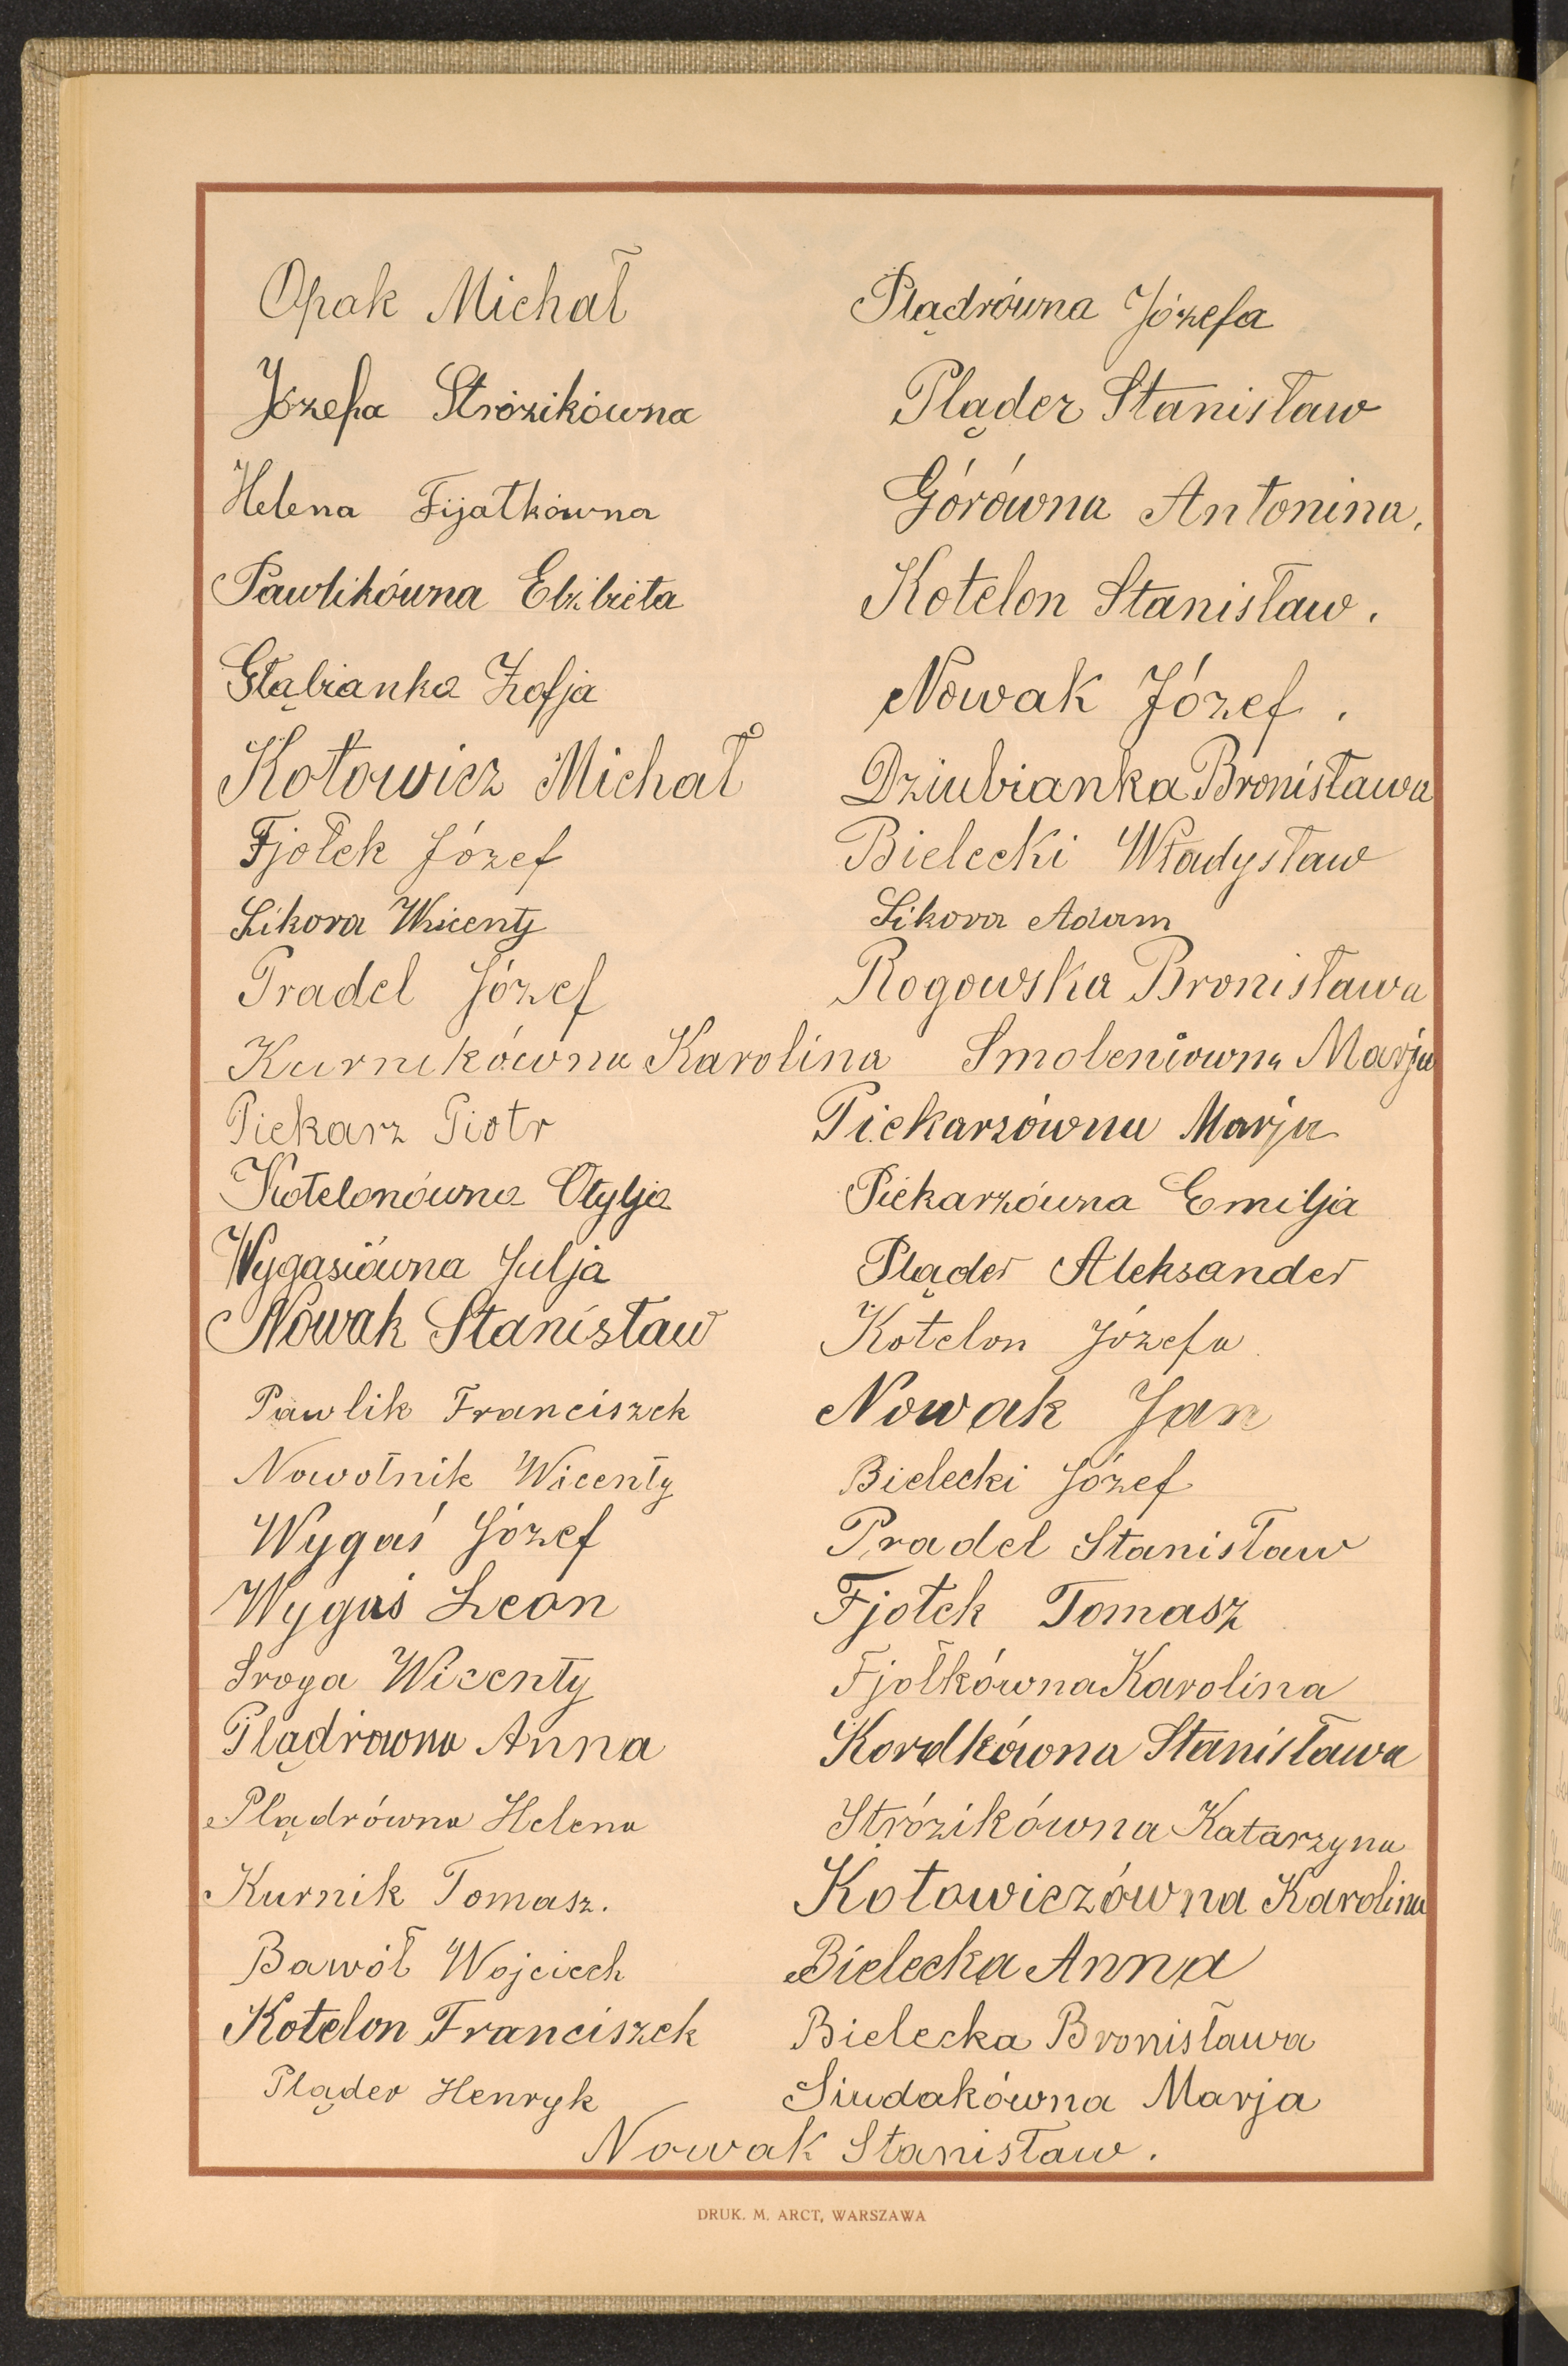 Opak Michał
Józefa Stróżikówna
Helena Fijałkówna
Pawlikówna Elżbieta
Głąbianka Zofja
Kotowicz Michał
Fjołek Józef
Sikora Wicenty
Pradel Józef
Kurnikówna Karolina
Piekarz Piotr
Kotelonówna Otylja
Wygasiówna Julja
Nowak Stanisław
Pawlik Franciszek
Nowotnik Wicenty
Wygaś Józef
Wygaś Leon
Sroga Wicenty
Plądrówna Anna
Plądrówna Helena
Kurnik Tomasz.
Bawół Wojciech
Kotelon Franciszek
Pląder Henryk
Plądrówna Józefa
Pląder Stanisław
Górówna Antonina.
Kotelon Stanisław.
Nowak Józef.
Dziubianka Bronisława
Bielecki Władysław
Sikora Adam
Rogowska Bronisława
Smoleniowna Marja
Piekarzówna Marja
Piekarzówna Emilja
Pląder Aleksander
Kotelon Józefa
Nowak Jan
Bielecki Józef
Pradel Stanisław
Fjołek Tomasz
Fjołkówna Karolina
Kordkówna Stanisława
Stróżikówna Katarzyna
Kotowiczówna Karolina
Bielecka Anna
Bielecka Bronisława
Siudakówna Marja
Nowak Stanisław.
DRUK. M. ARCT, WARSZAWA